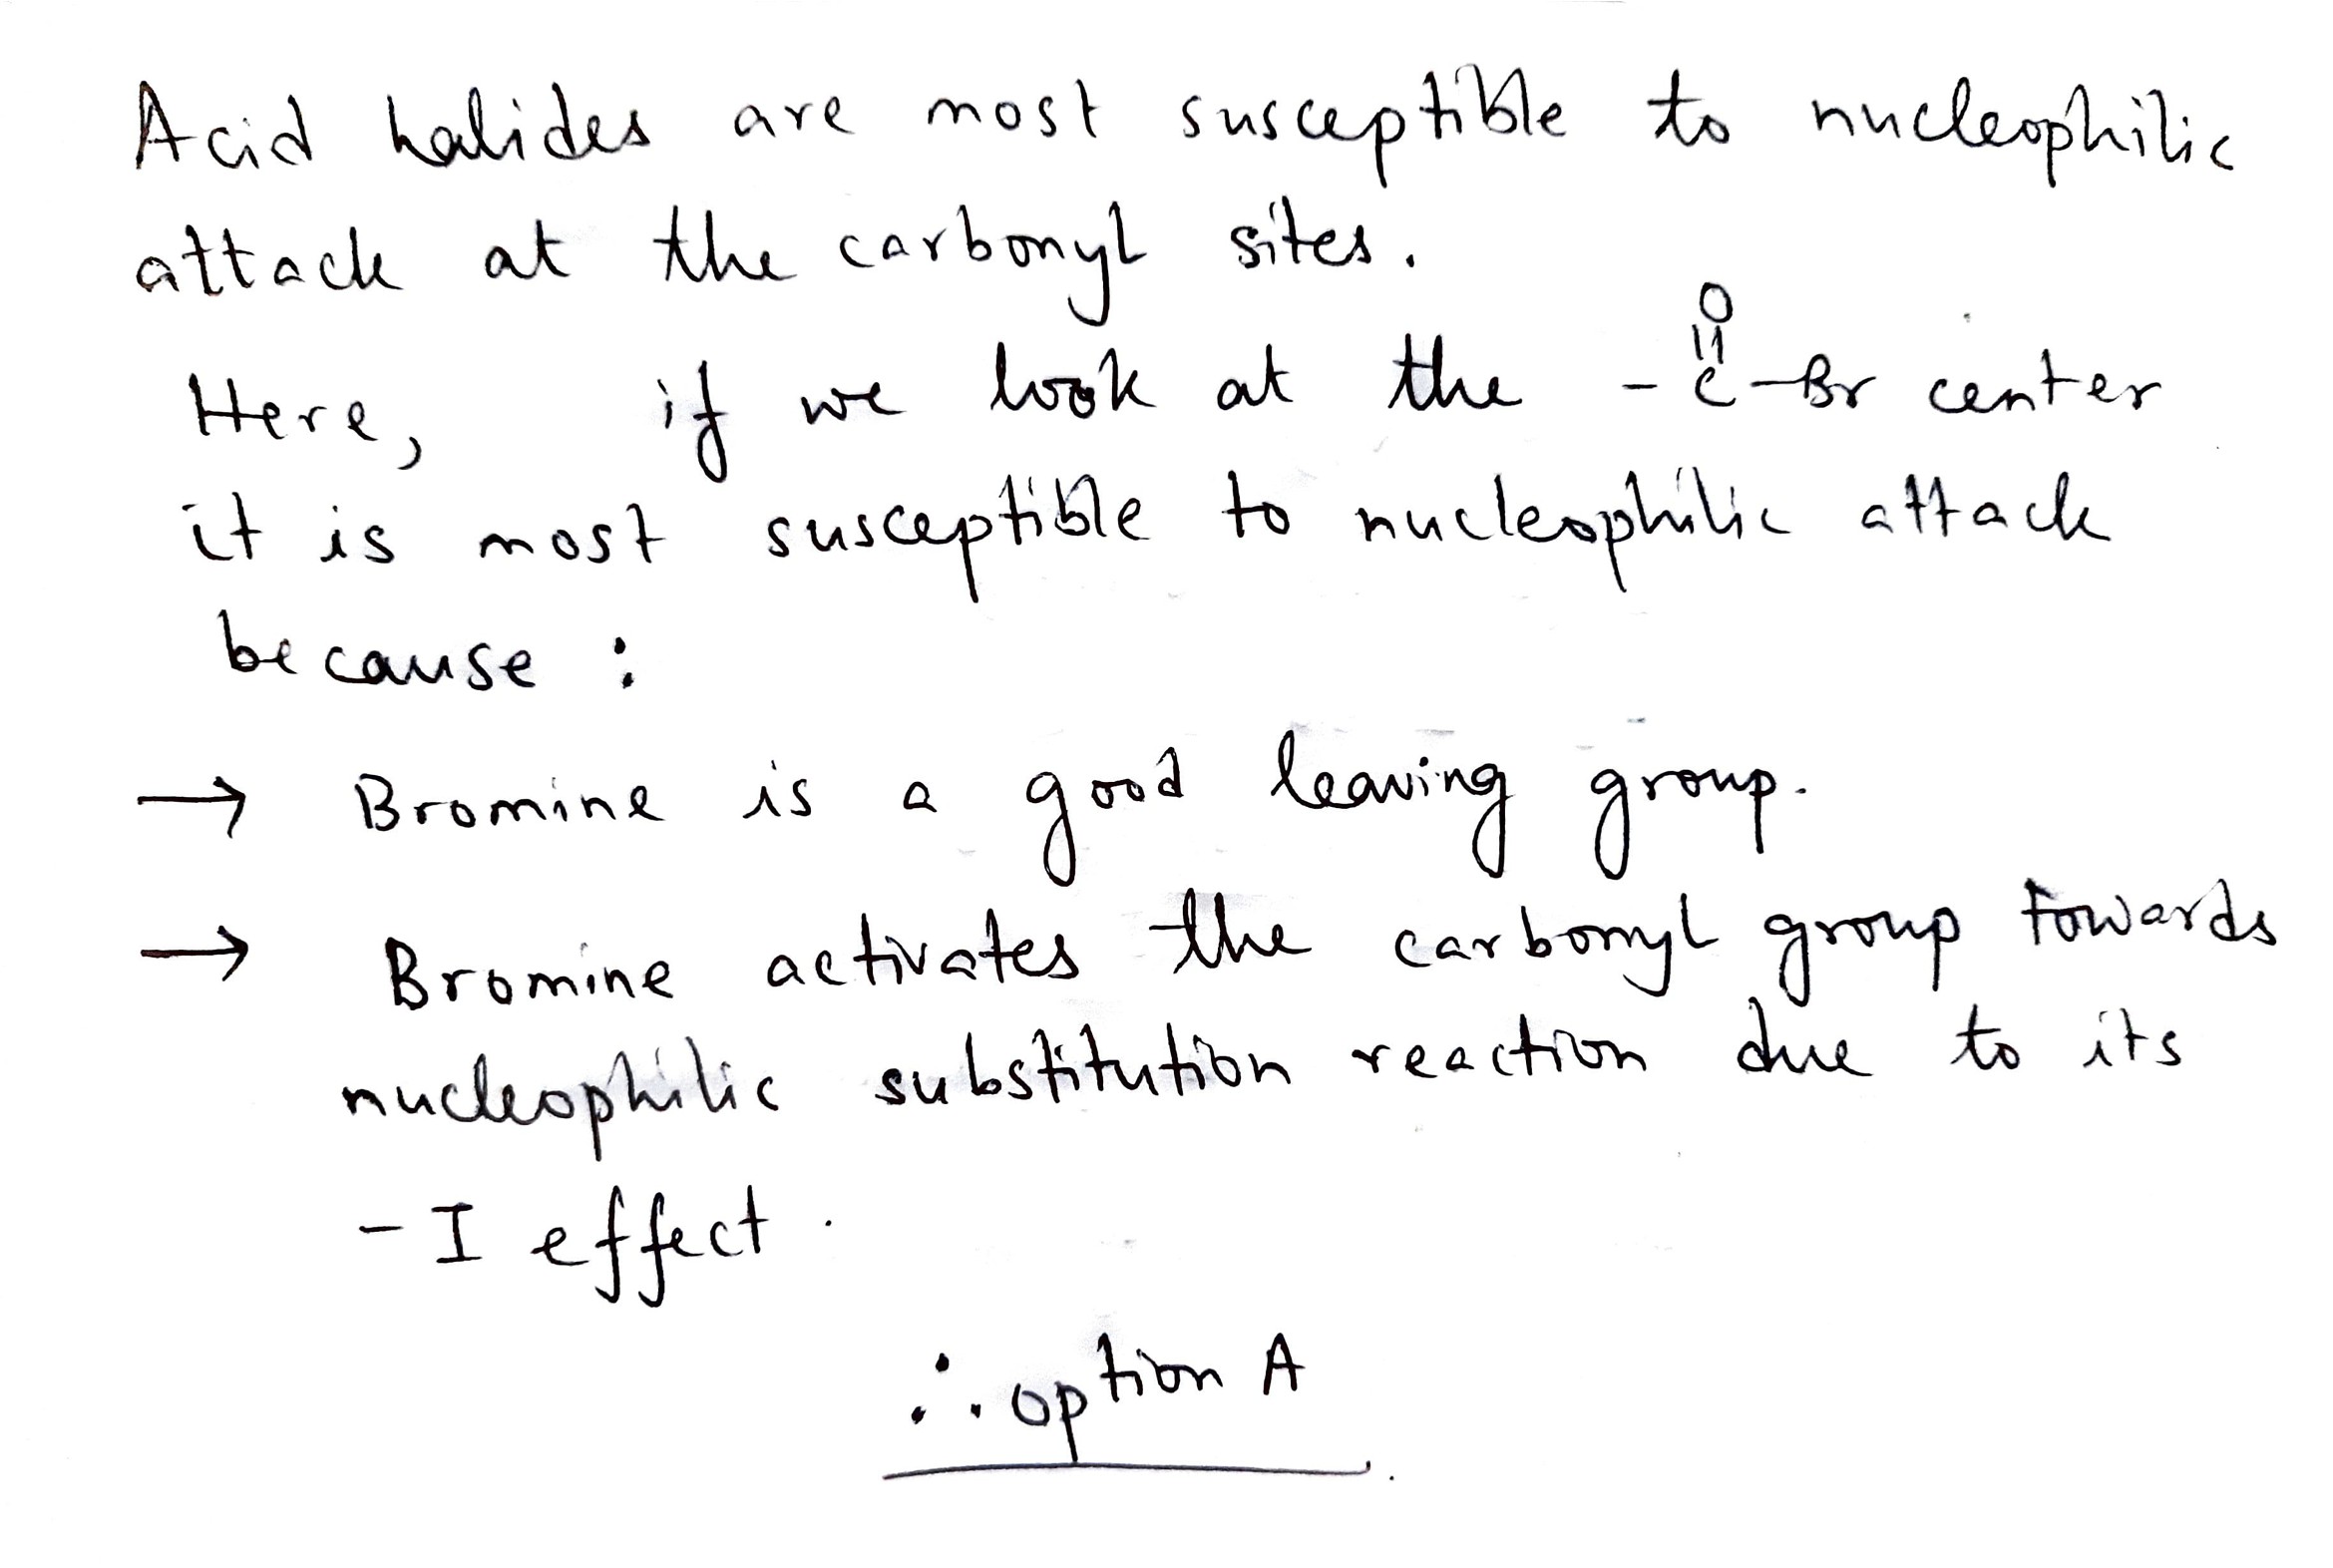 Acid halides are most susceptible to nucleophilic
attack at the carbonyl sites.
O
||
Here, if we look at the -C-Br center
it is most susceptible to nucleophilic attack
because :
→ Bromine is a good leaving group.
→ Bromine activates the carbonyl group towards
nucleophilic substitution reaction due to its
-I effect.
∴ option A